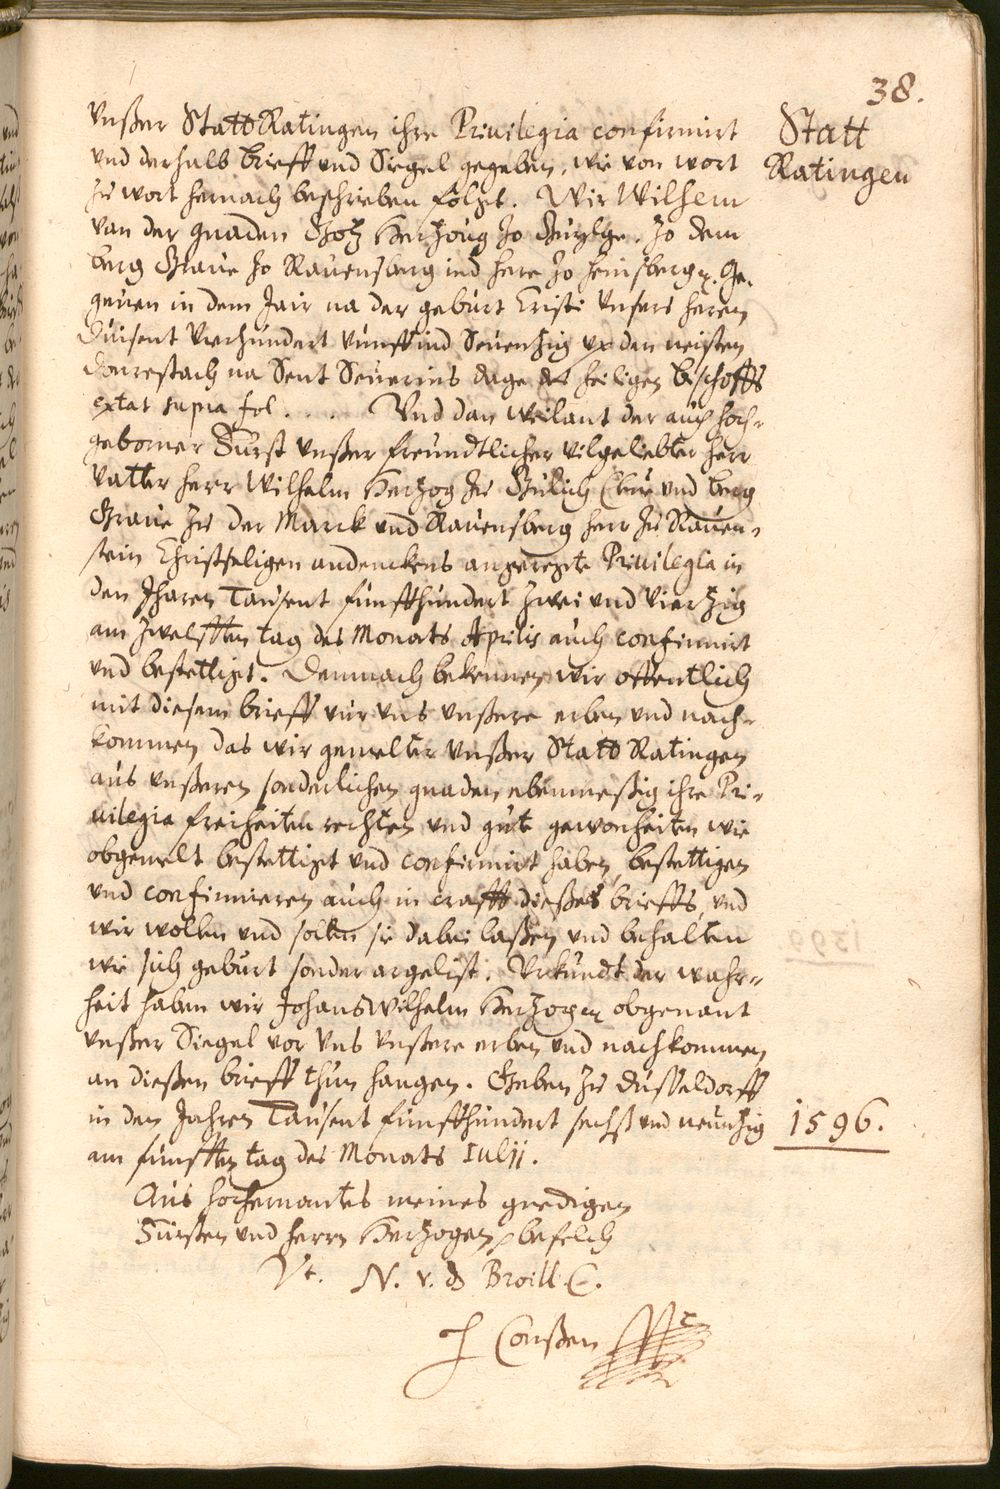 38.
Statt
Ratingen
Vnßer Statt Ratingen ihre Priuilegia confirmirt
vnd derhalb brieff vnd Siegel gegeben, wie von wort
zu wort hernach beschrieben folgt. Wir Wilhem
van der gnaden Gotz Hertzoug zo Guylge, zo dem
berg Graue zo Rauensberg ind here zo heinsberg &. Ge-
geuen in dem Jair na der geburt Cristi vnsers heren
Duisent vierhundert vunff ind Seuentzig vp den neisten
donrestach na Sent Seuerins dage des heiligen bischoffs
extat supra fol. . . . Vnd dan weilant der auch hoch-
geborner Furst vnßer freundtlicher vilgeliebter herr
Vatter herr Wilhelm Hertzog zu Gulich Cleue vnd berg
Graue zu der Marck vnd Rauensberg herr zu Rauen-
stein Christseligen andenckens angeregte Priuilegia in
den Jharen Tausent funffhundert zwei vnd viertzig
am zwelfften tag des Monats Aprilis auch confirmirt
vnd bestettigt. Demnach bekennen wir offentlich
mit diesem brieff vur vns vnßere erben vnd nach-
kommen das wir gemelter vnßer Statt Ratingen
aus vnßeren sonderlichen gnaden ebenmeßig ihre Pri-
uilegia freiheiten rechten vnd gute gewonheiten wie
obgemelt bestettigt vnd confirmirt haben, bestettigen
vnd confirmieren auch in crafft dießes brieffs, vnd
wir wollen vnd sollen sie dabei laßen vnd behalten
wie sich geburt sonder argelist. Vrkundt der wahr-
heit haben wir Johans Wilhelm Hertzog & obgenant
vnßer Siegel vor vns vnßere erben vnd nachkommen
an dießen brieff thun hangen. Geben zu Dusseldorff
in den Jahren Tausent funffhundert sechs vnd neuntzig
1596.
am funfften tag des Monats Iulij.
Aus hochernantes meines gnedigen
Fursten vnd herrn Hertzogen & befelch
Vt. N. v. d Broill C.
J Conßen